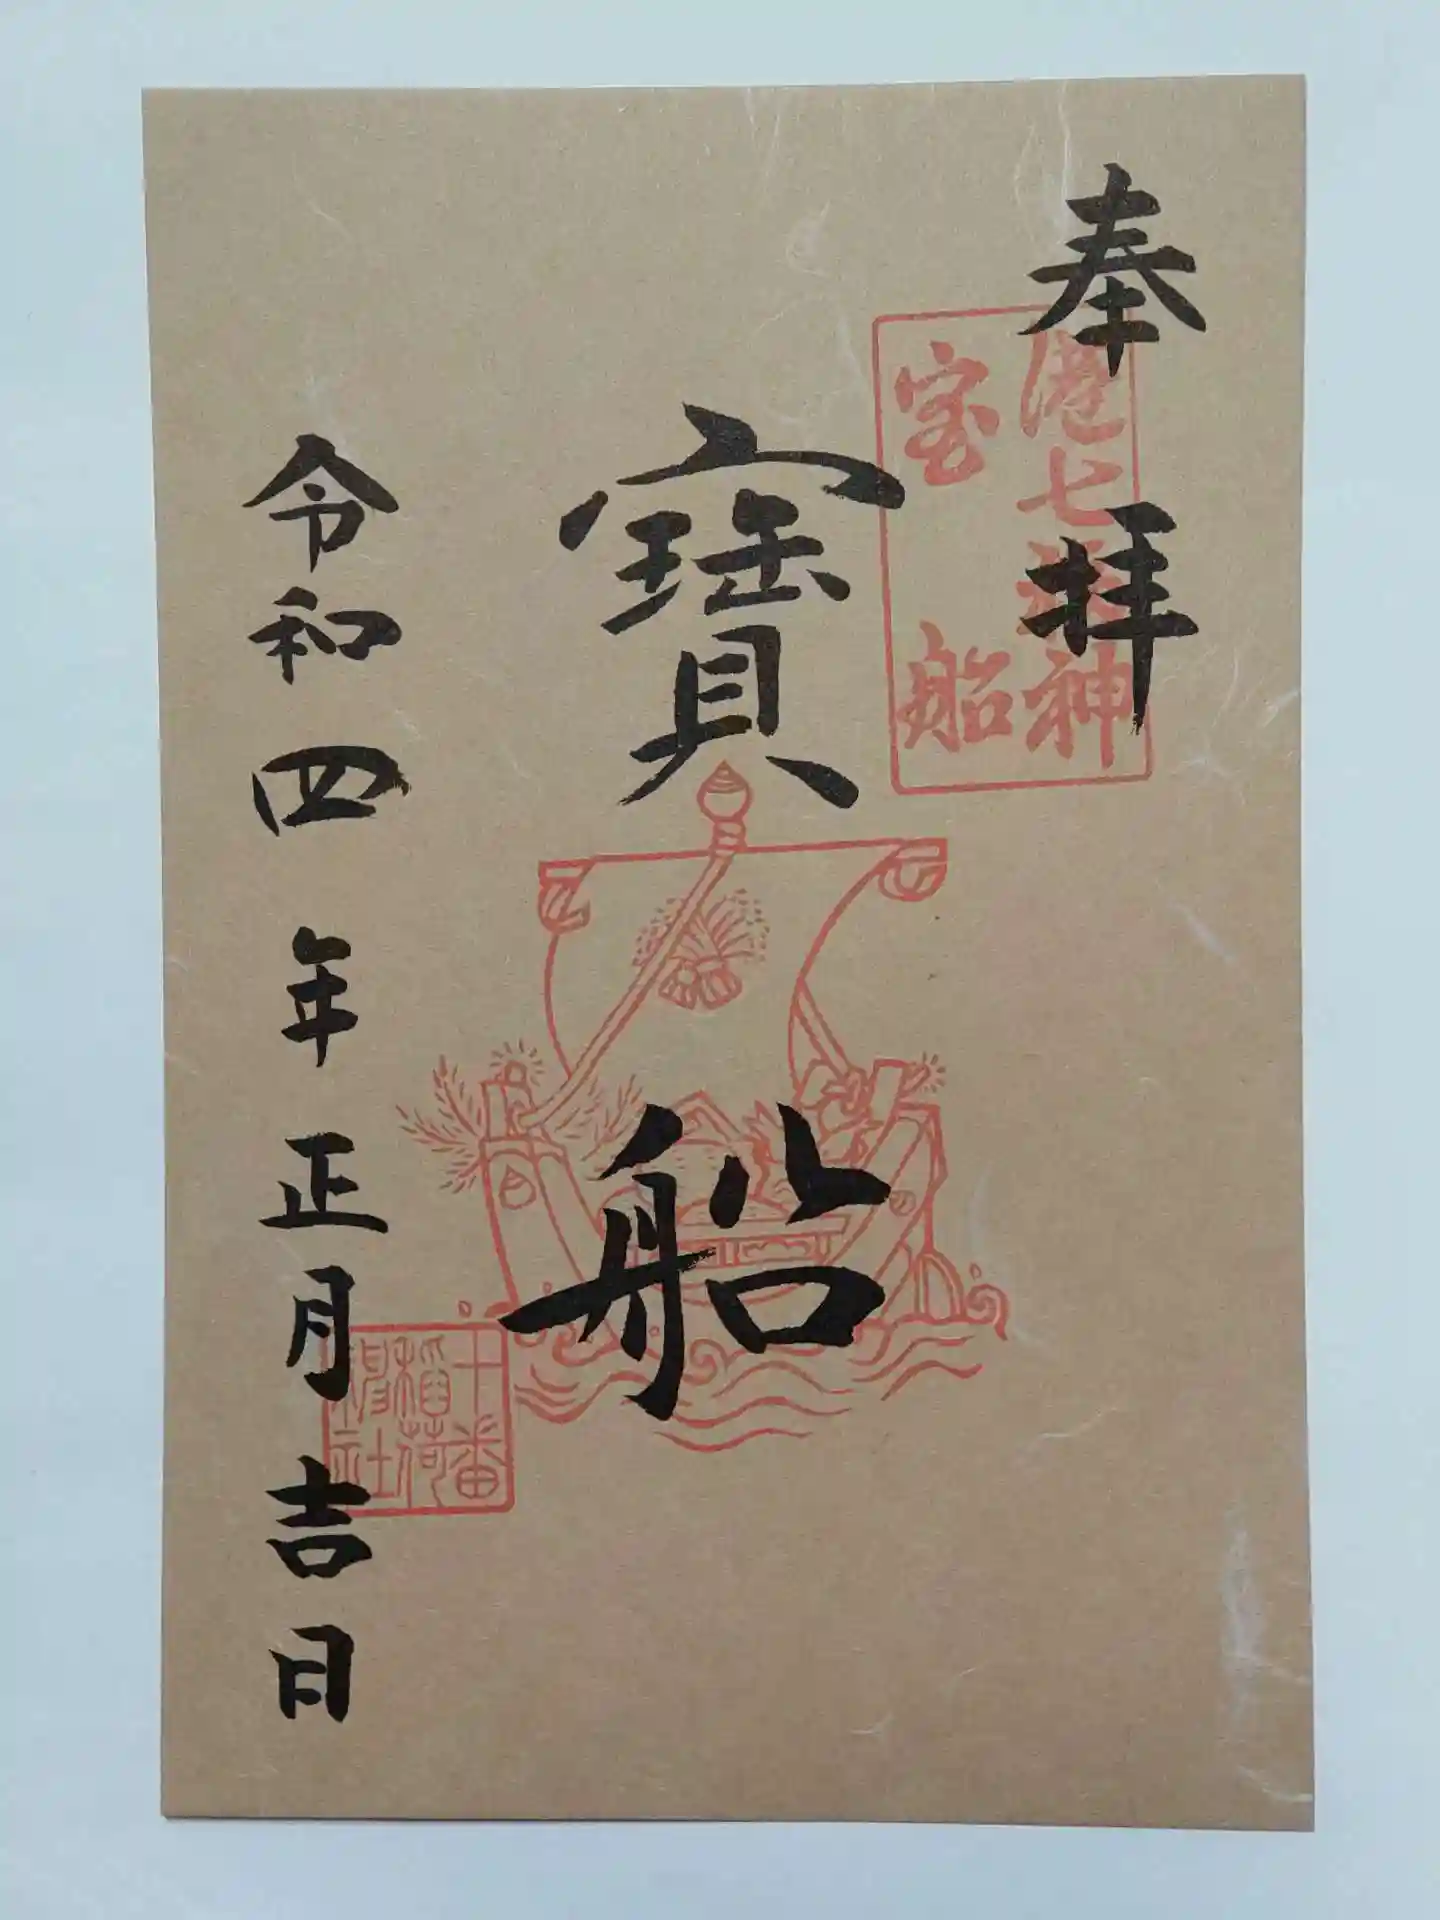 奉拝
港七福神
宝船
寳船
令和四年正月吉日
十番
稲荷
神社